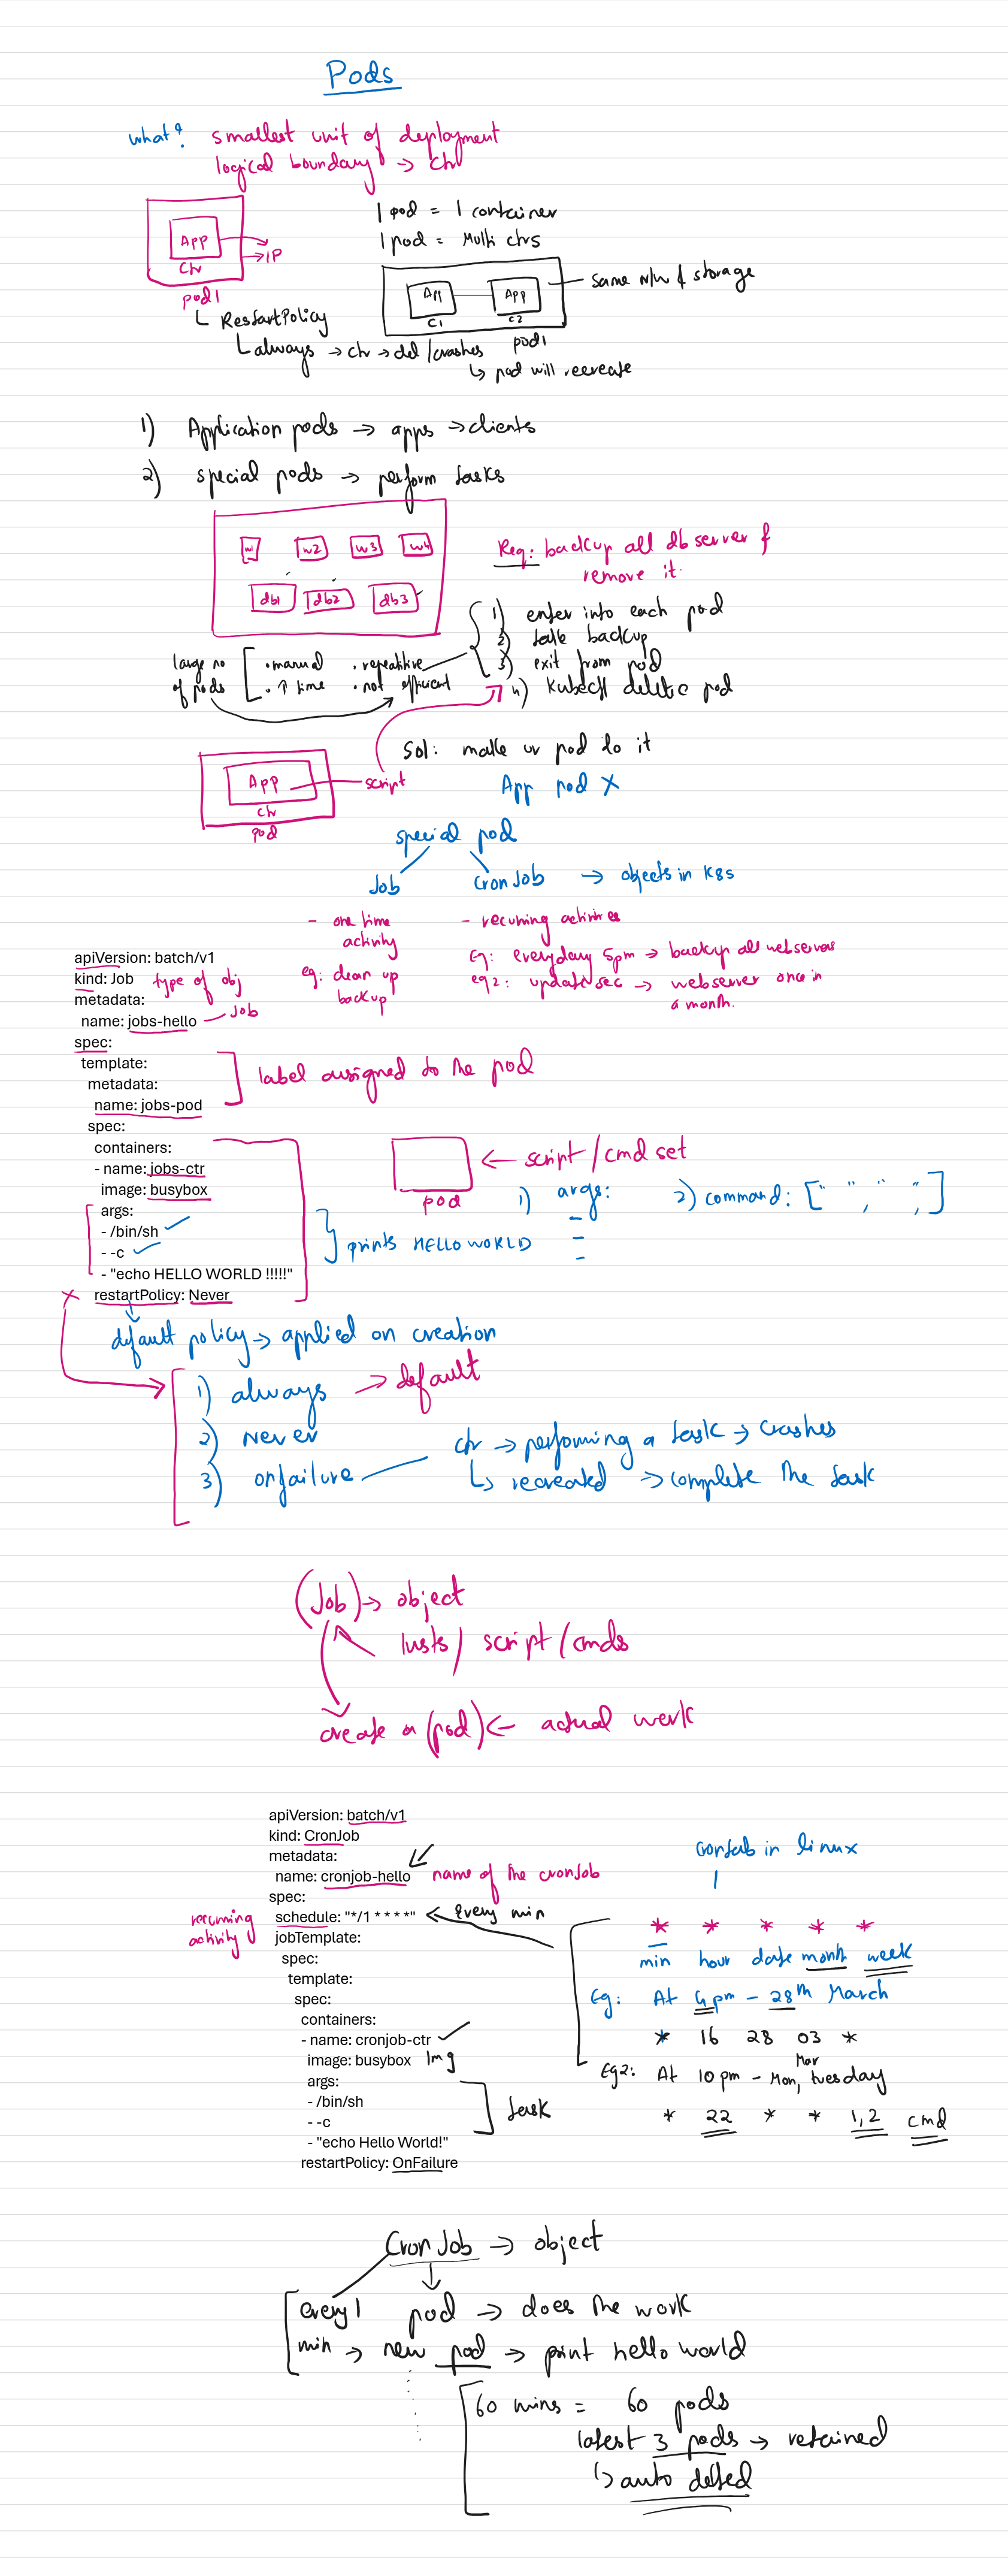 Pods
what? smallest unit of deployment
logical boundary → ctr
App
ctr
→ IP
pod1
1 pod = 1 container
1 pod = Multi ctrs
App
App
C1
C2
pod1
same n/w & storage
RestartPolicy
always → ctr → del / crashes
↳ pod will recreate
1) Application pods → apps → clients
2) special pods → perform tasks
w1 w2 w3 w4
db1 db2 db3
Req: backup all db server &
remove it.
1) enter into each pod
2) take backup
3) exit from pod
4) Kubectl delete pod
large no
of pods
. manual . repetitive
. ↑ time . not efficient
Sol: make ur pod do it
App
ctr
pod
script
App pod X
special pod
Job
CronJob → objects in K8s
- one time
activity
eg: clean up
backup
- recurring activities
Eg: everyday 5pm → backup all webservers
eg2: update sec → webserver once in
a month.
apiVersion: batch/v1
kind: Job type of obj
metadata:
name: jobs-hello Job
spec:
template:
metadata:
name: jobs-pod
label assigned to the pod
spec:
containers:
- name: jobs-ctr
image: busybox
args:
- /bin/sh
- -c
- "echo HELLO WORLD !!!!!"
restartPolicy: Never
pod
← script / cmd set
1) args:
-
-
-
2) command: [" ", " ", ]
prints HELLO WORLD
default policy → applied on creation
1) always → default
2) Never
3) onfailure
ctr → performing a task → crashes
↳ recreated → complete the task
(Job) → object
script / cmds
create a (pod) ← actual work
apiVersion: batch/v1
kind: CronJob
metadata:
name: cronjob-hello name of the cronJob
spec:
schedule: "*/1 * * * *" ← Every min
recurring
activity
jobTemplate:
spec:
template:
spec:
containers:
- name: cronjob-ctr
image: busybox Img
args:
- /bin/sh
- -c
- "echo Hello World!"
task
restartPolicy: OnFailure
cronJob in linux
* * * * *
min hour date month week
Eg: At 4pm - 28th March
* 16 28 03 *
Mar
Eg2: At 10 pm - Mon, tuesday
* 22 * * 1,2 cmd
CronJob → object
every 1
min → new pod → print hello world
pod → does the work
60 mins = 60 pods
latest 3 pods → retained
↳ auto delted